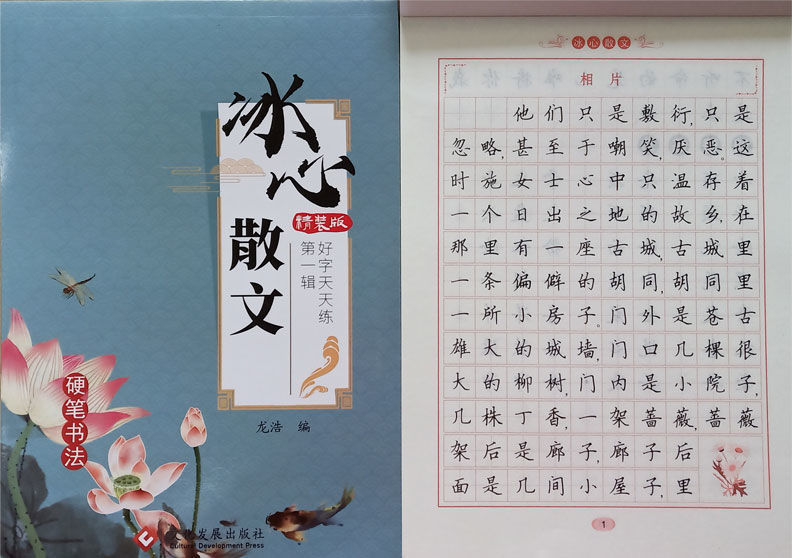 冰心
散文
精装版
好字天天练
第一辑
龙浩 编
硬笔书法
文化发展出版社
Cultural Development Press
冰心散文
相片
他们只是敷衍,只是
忽略,甚至于嘲笑,厌恶。这
时施女士心中只温存着
一个日出之地的故乡,在
那里有一座古城,古城里
一条偏僻的胡同,胡同里
一所小房子。门外是苍古
雄大的城墙,门口几棵很
大的柳树,门内是小院子,
几株丁香,一架蔷薇,蔷薇
架后是廊子,廊子后
面是几间小屋子,里
1